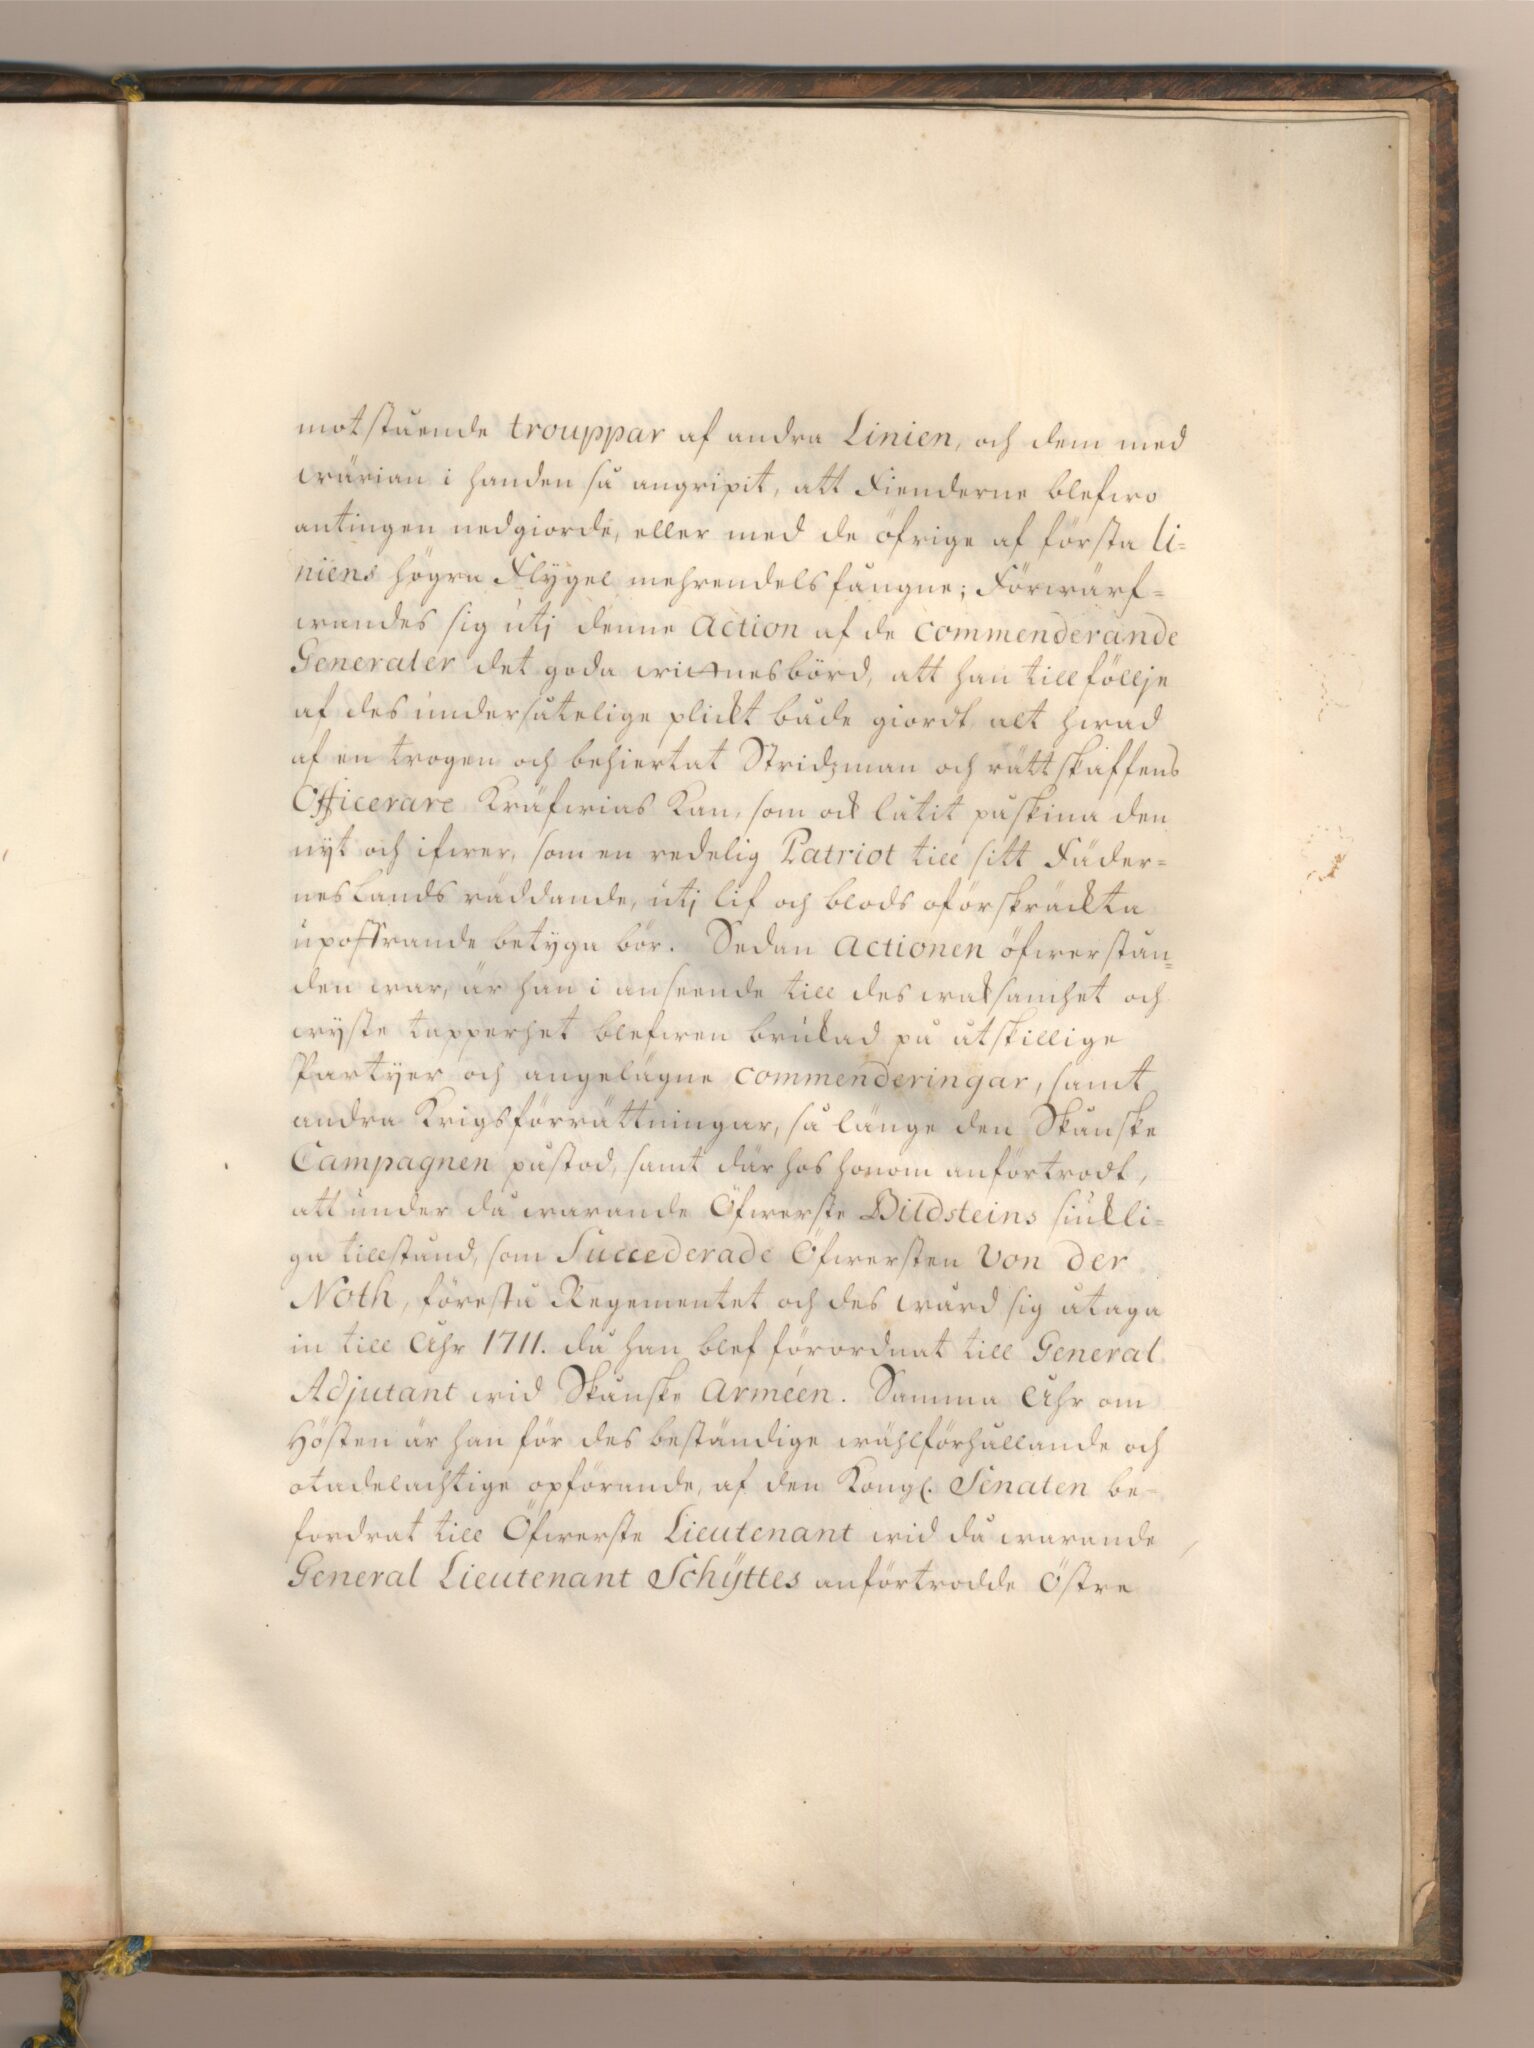 motstående trouppar af andra Linien, och dem med
wärian i handen så angripit, att Fienderne blefwo
antingen nedgiorde, eller med de öfrige af första li=
niens högra Flygel mehrendels fångne; Förwärf=
wandes sig utj denne Action af de Commenderande
Generaler det goda wittnesbörd, att han till föllje
af des undersåtelige plickt både giordt alt hwad
af en trogen och behiertat Stridzman och rättskaffens
Officerare Kräfwias Kan, som ock låtit påskina den
nyt och ifwer, som en redelig Patriot till sitt Fäder=
neslands räddande, utj lif och blods oförskräckta
upoffrande betyga bör. Sedan Actionen öfwerstån=
den war, är han i anseende till des waksamhet och
wyste tapperhet blefwen brukad på åtskillige
Partyer och angelägne Commenderingar, samt
andra Krigsförrättningar, så länge den Skånske
Campagnen påstod, samt där hos honom anförtrodt,
att under då warande Öfwerste Bildsteins siuckli=
ga tillstånd, som Succederade Öfwersten Von der
Noth, förestå Regementet och des wård sig åtaga
in till Åhr 1711. då han blef förordnat till General
Adjutant wid Skånske Arméen. Samma Åhr om
Hösten är han för des beständige wählförhållande och
otadelachtige opförande, af den Kongl. Senaten be=
fordrat till Öfwerste Lieutenant wid då warande
General Lieutenant Schÿttes anförtrodde Östre